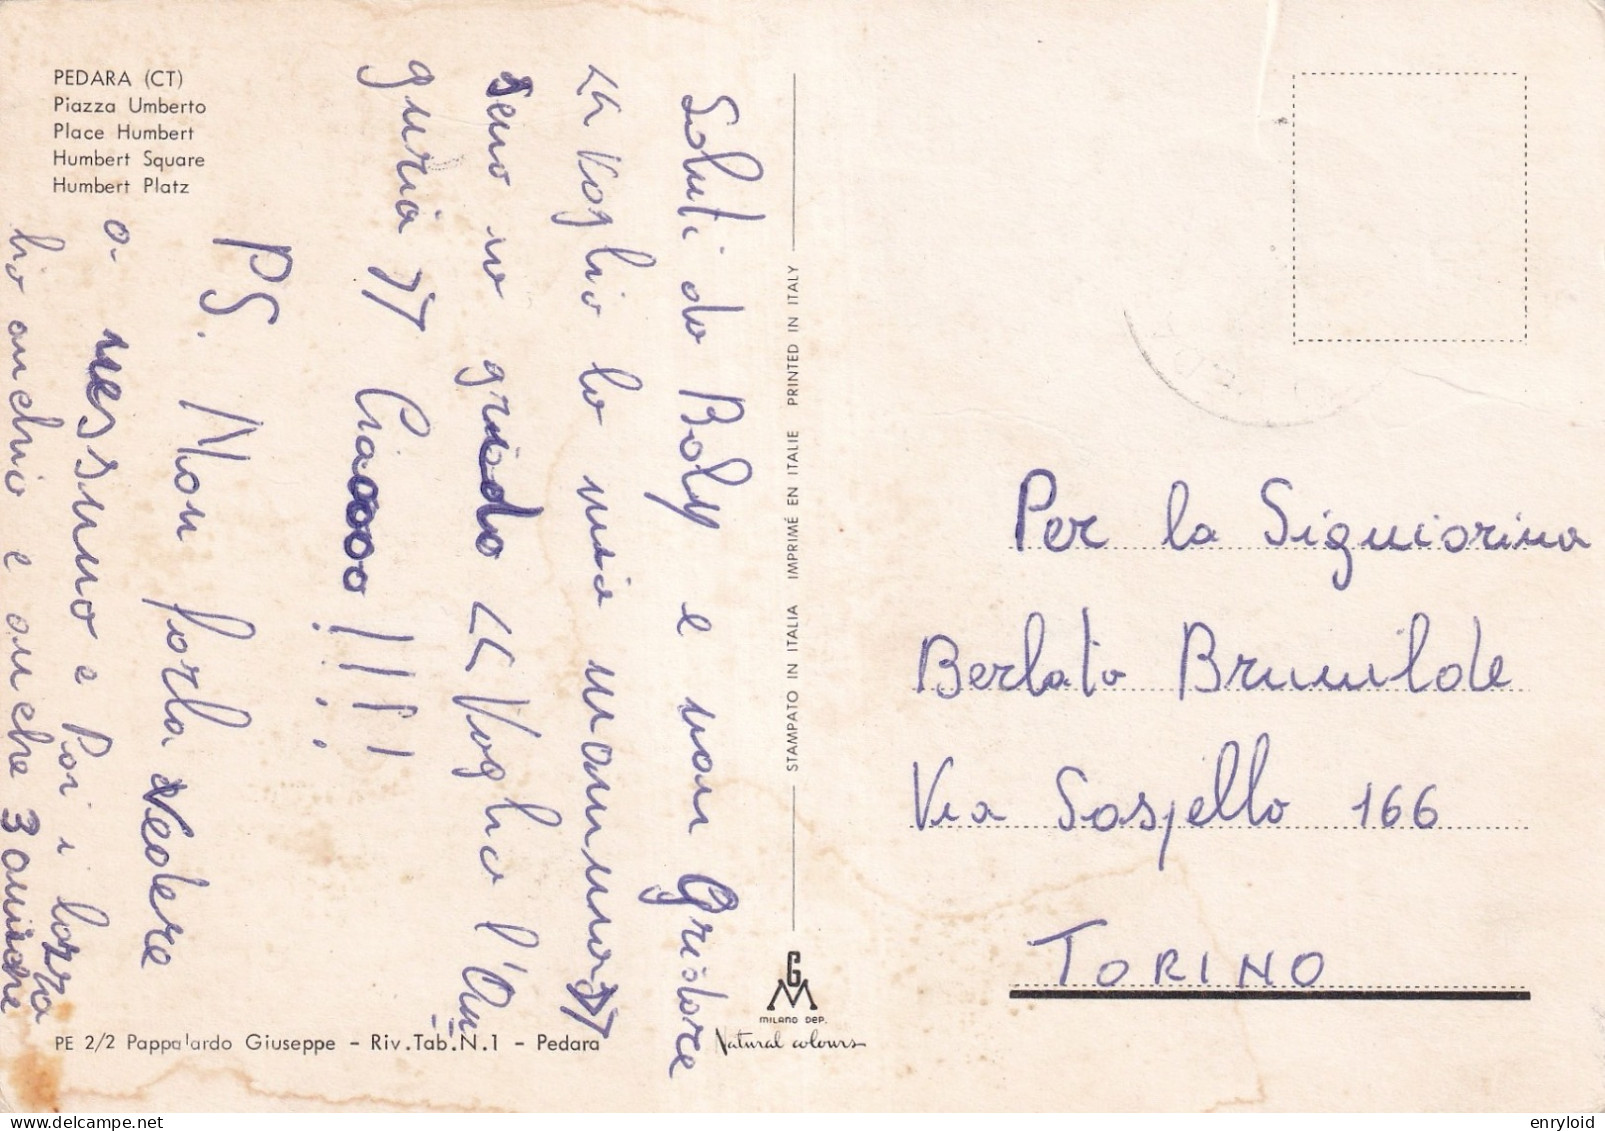 PEDARA (CT)
Piazza Umberto
Place Humbert
Humbert Square
Humbert Platz
Saluti da Boly e non Gridare
<< Voglio la mia mamma >>
seno io grido << Voglio l'An=
guria >> Ciaoooo !!!!
PS. Non farla vedere
a nessuno e Poi i
hio anchio e anche 3 amiche
STAMPATO IN ITALIA IMPRIMÉ EN ITALIE PRINTED IN ITALY
Per la Signiorina
Berlato Brunilde
Via Sospello 166
TORINO
GM
MILANO DEP.
Natural colours
PE 2/2 Pappalardo Giuseppe - Riv.Tab.N.1 - Pedara
enryloid